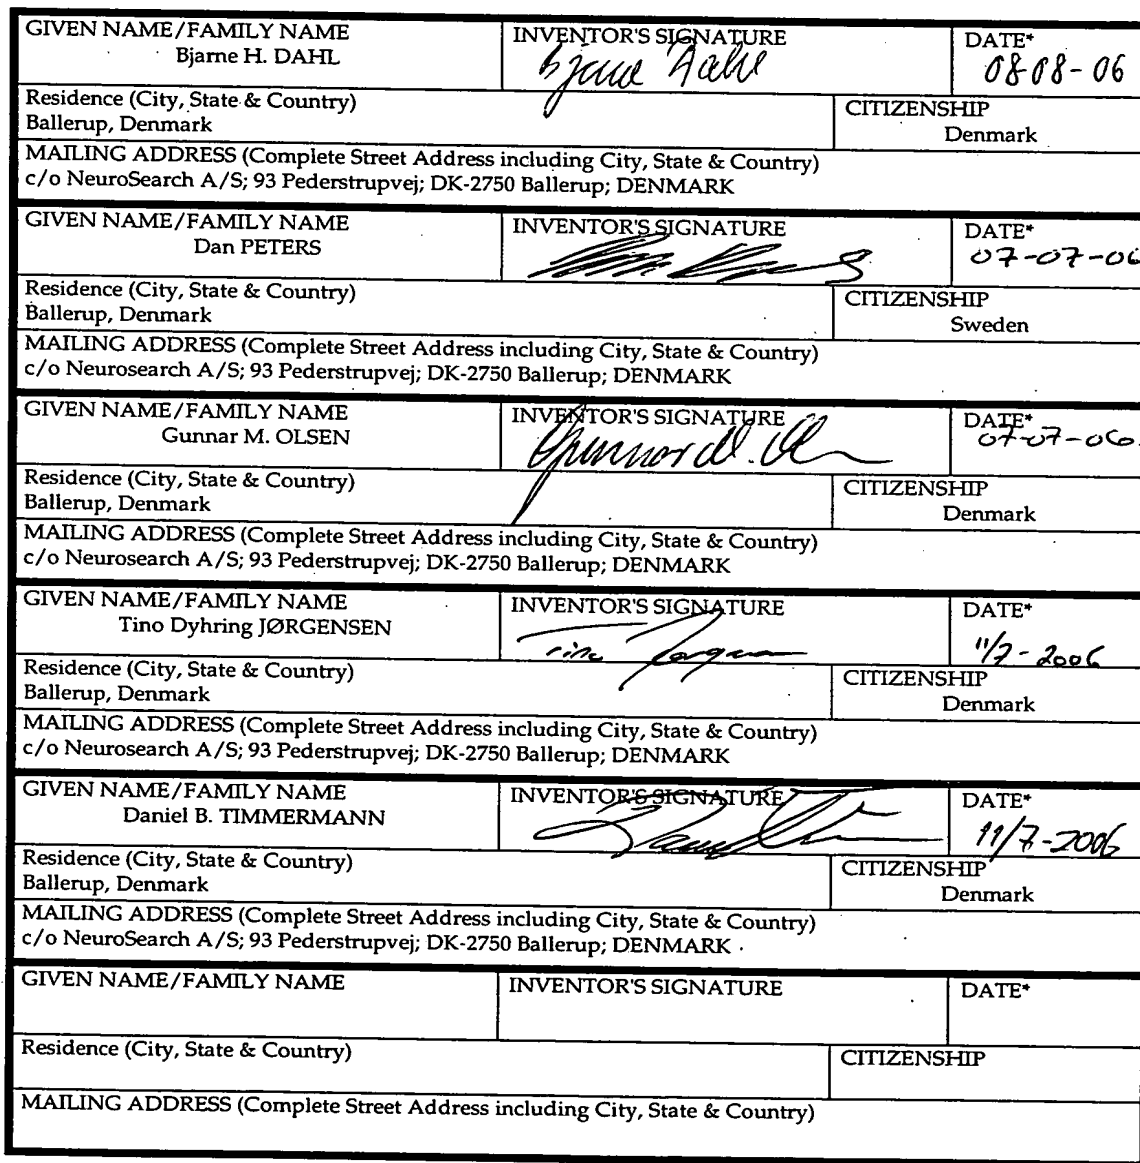 GIVEN NAME/FAMILY NAME INVENTOR'S SIGNATURE DATE*
Bjarne H. DAHL Bjarne Dahl 0808-06
Residence (City, State & Country) CITIZENSHIP
Ballerup, Denmark Denmark
MAILING ADDRESS (Complete Street Address including City, State & Country)
c/o NeuroSearch A/S; 93 Pederstrupvej; DK-2750 Ballerup; DENMARK
GIVEN NAME/FAMILY NAME INVENTOR'S SIGNATURE DATE*
Dan PETERS 07-07-06
Residence (City, State & Country) CITIZENSHIP
Ballerup, Denmark Sweden
MAILING ADDRESS (Complete Street Address including City, State & Country)
c/o Neurosearch A/S; 93 Pederstrupvej; DK-2750 Ballerup; DENMARK
GIVEN NAME/FAMILY NAME INVENTOR'S SIGNATURE DATE*
Gunnar M. OLSEN Gunnar M. 07-07-06
Residence (City, State & Country) CITIZENSHIP
Ballerup, Denmark Denmark
MAILING ADDRESS (Complete Street Address including City, State & Country)
c/o Neurosearch A/S; 93 Pederstrupvej; DK-2750 Ballerup; DENMARK
GIVEN NAME/FAMILY NAME INVENTOR'S SIGNATURE DATE*
Tino Dyhring JØRGENSEN Tino 11/7-2006
Residence (City, State & Country) CITIZENSHIP
Ballerup, Denmark Denmark
MAILING ADDRESS (Complete Street Address including City, State & Country)
c/o Neurosearch A/S; 93 Pederstrupvej; DK-2750 Ballerup; DENMARK
GIVEN NAME/FAMILY NAME INVENTOR'S SIGNATURE DATE*
Daniel B. TIMMERMANN 11/7-2006
Residence (City, State & Country) CITIZENSHIP
Ballerup, Denmark Denmark
MAILING ADDRESS (Complete Street Address including City, State & Country)
c/o NeuroSearch A/S; 93 Pederstrupvej; DK-2750 Ballerup; DENMARK
GIVEN NAME/FAMILY NAME INVENTOR'S SIGNATURE DATE*
Residence (City, State & Country) CITIZENSHIP
MAILING ADDRESS (Complete Street Address including City, State & Country)